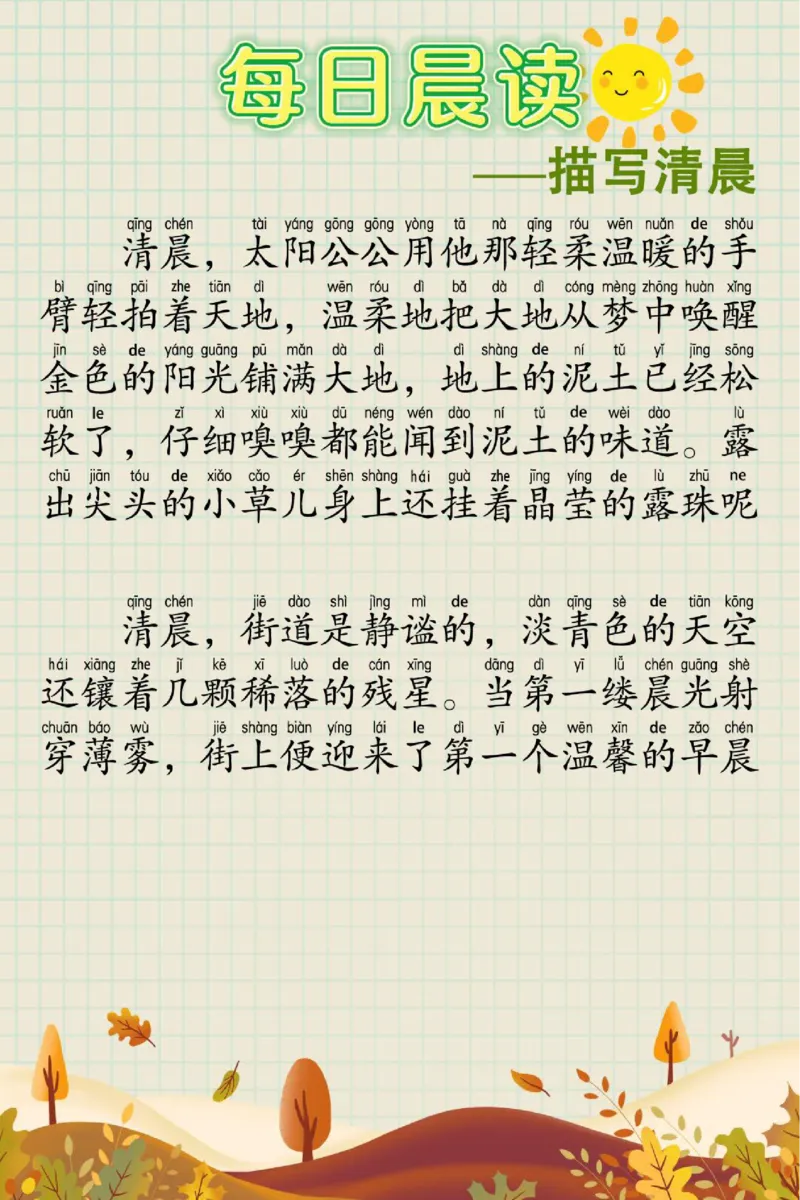 每日晨读
——描写清晨
qīng chén tài yáng gōng gōng yòng tā nà qīng róu wēn nuǎn de shǒu
清晨，太阳公公用他那轻柔温暖的手
bì qīng pāi zhe tiān dì wēn róu dì bǎ dà dì cóng mèng zhōng huàn xǐng
臂轻拍着天地，温柔地把大地从梦中唤醒
jīn sè de yáng guāng pū mǎn dà dì dì shàng de ní tǔ yǐ jīng sōng
金色的阳光铺满大地，地上的泥土已经松
ruǎn le zǐ xì xiù xiù dū néng wén dào ní tǔ de wèi dào lù
软了，仔细嗅嗅都能闻到泥土的味道。露
chū jiān tóu de xiǎo cǎo ér shēn shàng hái guà zhe jīng yíng de lù zhū ne
出尖头的小草儿身上还挂着晶莹的露珠呢
qīng chén jiē dào shì jìng mì de dàn qīng sè de tiān kōng
清晨，街道是静谧的，淡青色的天空
hái xiāng zhe jǐ kē xī luò de cán xīng dāng dì yī lǚ chén guāng shè
还镶着几颗稀落的残星。当第一缕晨光射
chuān báo wù jiē shàng biàn yíng lái le dì yī gè wēn xīn de zǎo chén
穿薄雾，街上便迎来了第一个温馨的早晨